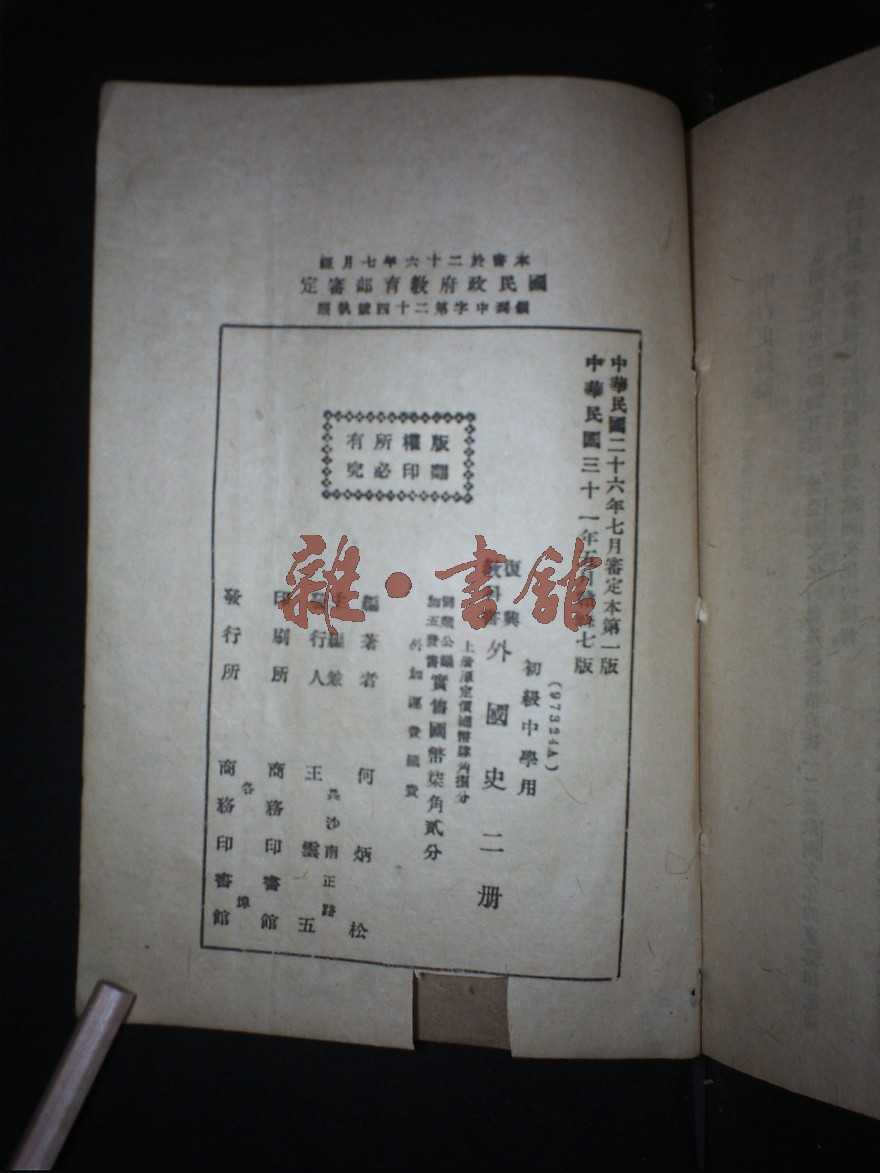 本書於二十六年七月經
國民政府教育部審定
領到中字第二十四號執照
中華民國二十六年七月審定本第一版
中華民國三十一年五月 七版
版權所有
翻印必究
(97324A)
初級中學用
復興
教科書
外國史二冊
上册原定價國幣肆角捌分
加五發售實售國幣柒角貳分
外加運費匯費
編著者 何炳松
發行人 王雲五
長沙南正路
印刷所 商務印書館
發行所 商務印書館
各埠
雜·書館